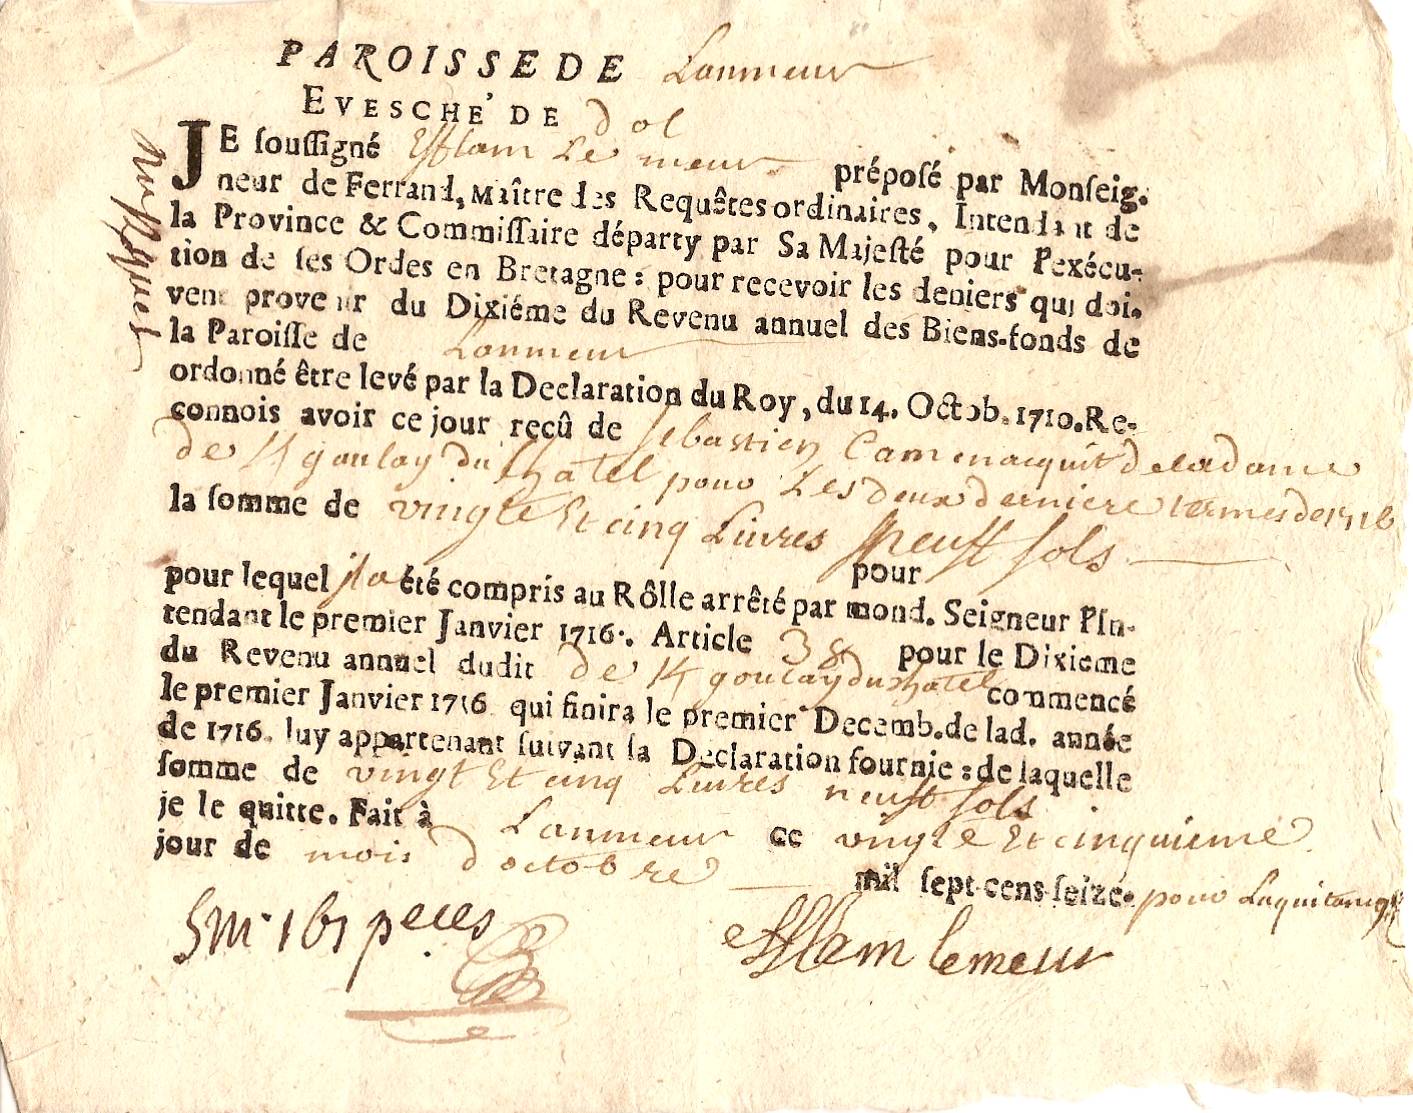 PAROISSE DE Lanmeur
EVESCHE' DE dol
JE soussigné Efflam Le meur préposé par Monseig.
neur de Ferrand, Maître des Requêtes ordinaires, Intendant de
la Province & Commissaire départy par Sa Majesté pour l'exécu-
tion de ses Ordes en Bretagne : pour recevoir les deniers qui doi.
vent provenir du Dixiéme du Revenu annuel des Biens-fonds de
la Paroisse de Lanmeur
ordonné être levé par la Declaration du Roy, du 14. Octob. 1710. Re-
connois avoir ce jour reçû de sebastien Cam en acquit de la dame
de goulay du Chatel pour Les deux derniere termes de 1716
la somme de vingte Et cinq Livres neuff sols
pour
pour lequel il a été compris au Rôlle arrêté par mond. Seigneur l'In-
tendant le premier Janvier 1716. Article 38 pour le Dixieme
du Revenu annuel dudit de goulay du chatel commencé
le premier Janvier 1716 qui finira le premier Decemb. de lad. année
de 1716. luy appartenant suivant sa Declaration fournie : de laquelle
somme de vingt Et cinq Livres neuff sols
je le quitte. Fait à Lanmeur ce vingte Et cinquieme
jour de mois doctobre mil sept cens seize. pour Laquitance
Efflam lemeur